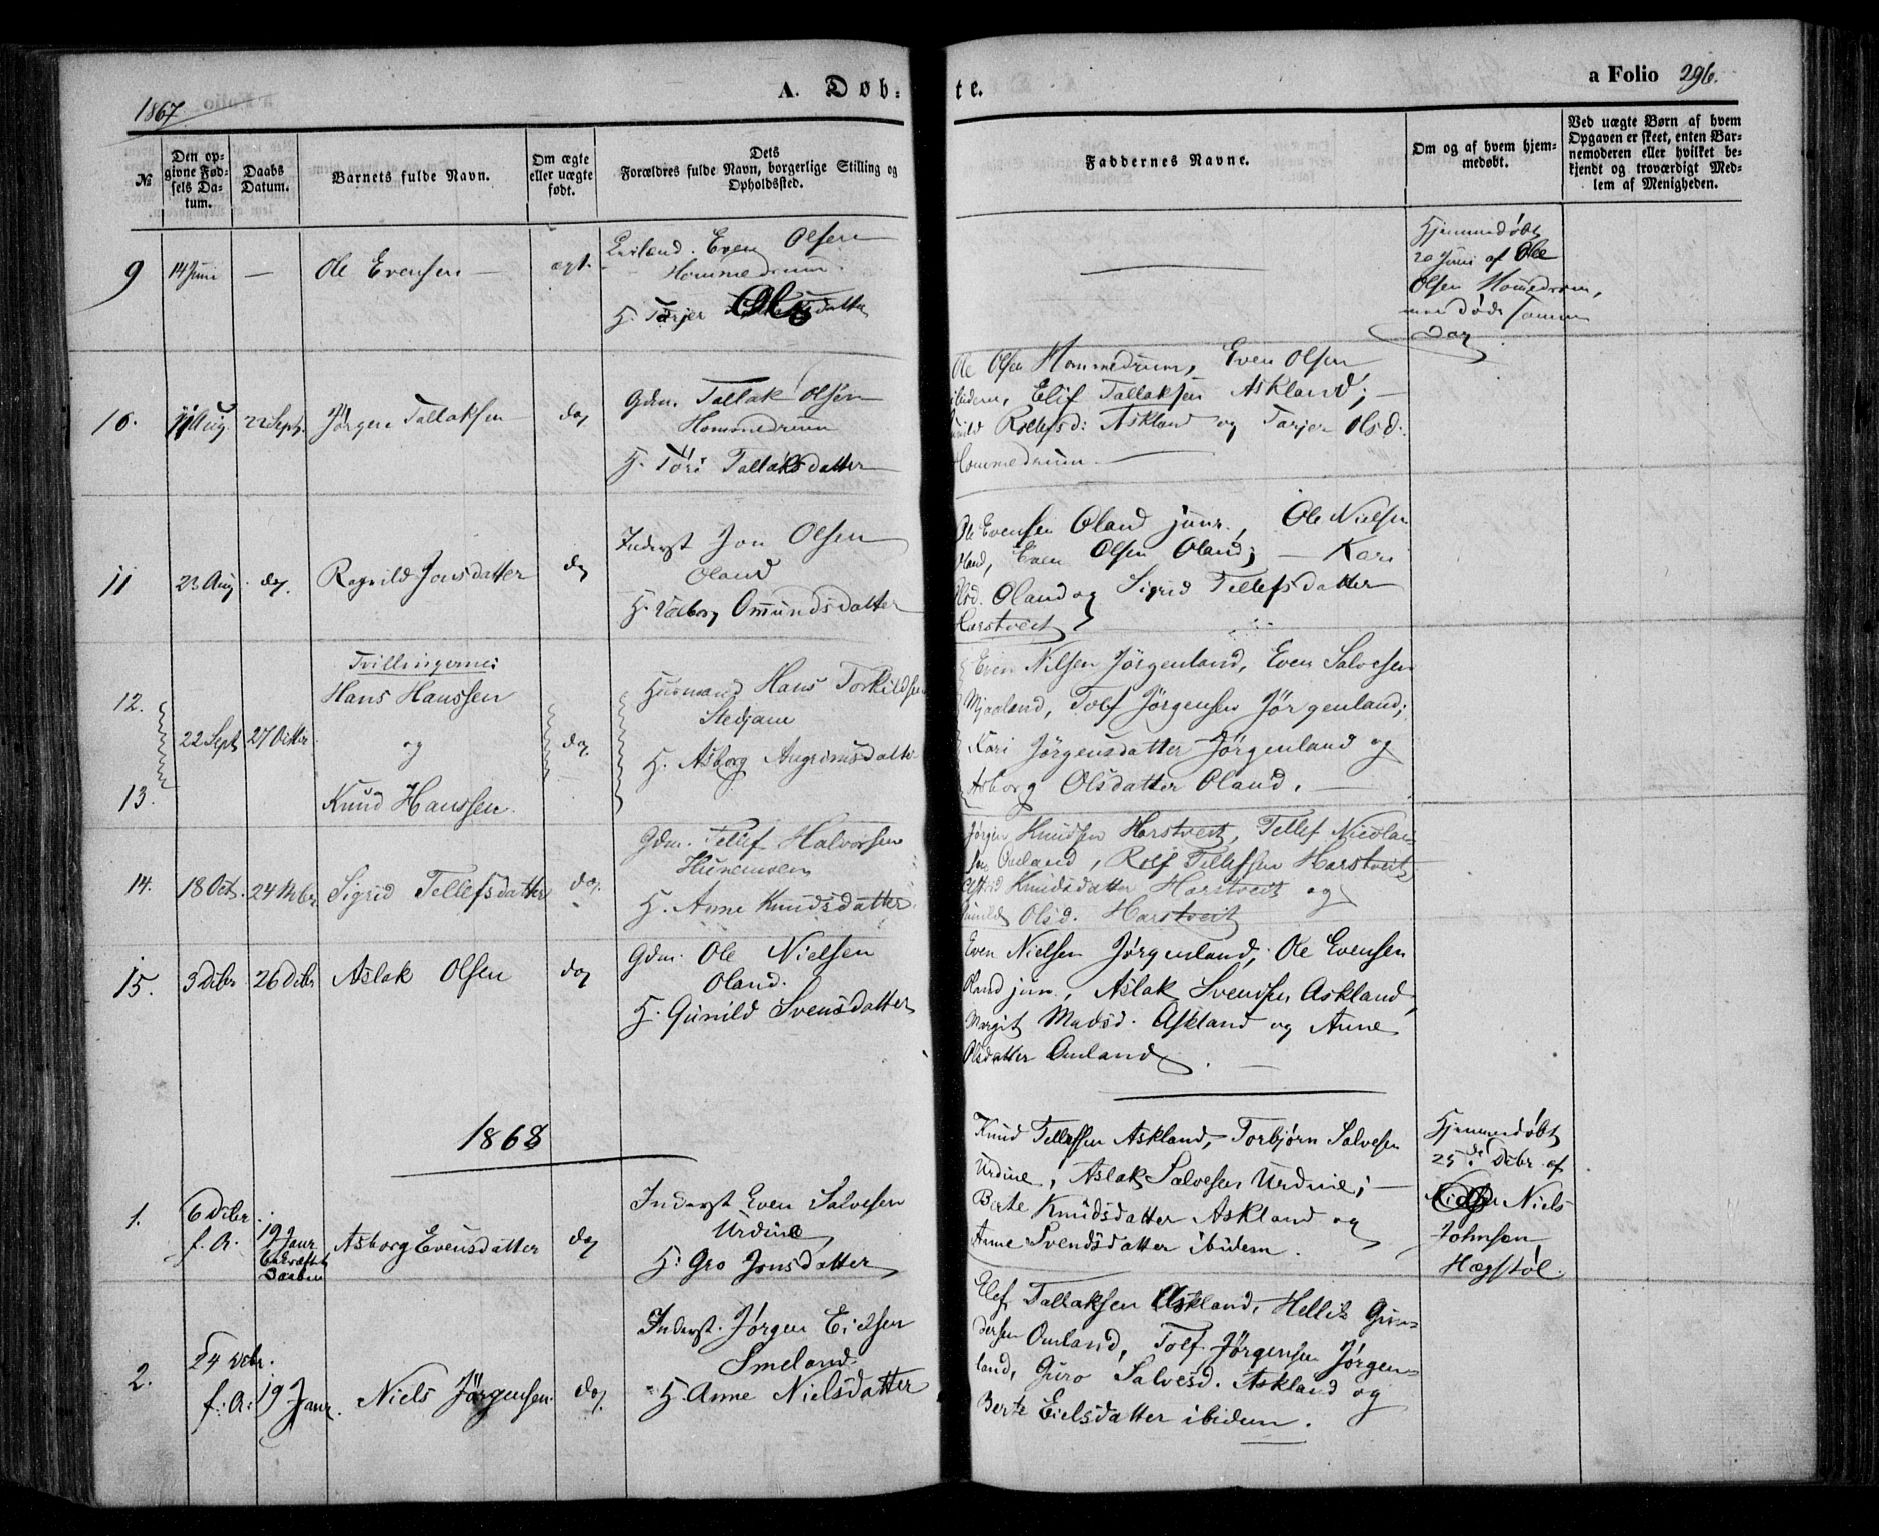 1867
A. Døb-te.
a Folio 296.
№
Den opgivne Fødsels Datum.
Daabs Datum.
Barnets fulde Navn.
Om ægte eller uægte født.
Dets
Forældres fulde Navn, borgerlige Stilling og
Opholdssted.
Faddernes Navne.
Om og af hvem hjemmedøbt.
Ved uægte Børn af hvem
Opgaven er skeet, enten Barnemoderen
eller hvilket bekjendt
og troværdigt Medlem
af Menigheden.
9
14 Juni
—
Ole Evensen
ægt.
Even Olsen
Hommedrum.
H. Tarjer Olsdatter
Hjemmedøbt
20 Juni af Ole
Olsen Homedrom,
men døde samme
Dag
10.
11 Aug.
22 Sept.
Jørgen Tallaksen
do
Gdm. Tallak Olsen
Hommedrum
H. Tori Tallaksdatter
Ole Olsen Hommedrum, Even Olsen
ibidem, Elif Tallaksen Askland; —
Gunild Rollefsd: Askland og Tarjer Olsd:
Hommedrum
11
23 Aug
do.
Ragnild Jonsdatter
do
Inderst Jon Olsen
Oland
H. Valborg Omundsdatter
Ole Evensen Oland junr., Ole Nielsen
Oland, Even Olsen Oland; — Kari
Olsd. Oland og Sigrid Tellefsdatter
Harstveit
12.
13.
22 Sept
27 Octbr.
Tvillingerne:
Hans Hanssen
og
Knud Hanssen.
do.
Huusmand Hans Torkildsen
Stedjam
H. Asborg Angrimsdatter
Even Nilsen Jørgenland, Even Salvesen
Mjaaland, Tolf Jørgensen Jørgenland;
Kari Jørgensdatter Jørgenland og
Asborg Olsdatter Oland.
14.
18 Oct.
24 Nvbr.
Sigrid Tellefsdatter
do.
Gdm. Tellef Halvorsen
H. Anne Knudsdatter
Jørgen Knudsen Harstveit, Tellef Nicolaisen
Omland, Rolf Tellefsen Harstveit
Knudsdatter Harstveit og
Gunild Olsd. Harstveit
15.
3 Dcbr
26 Dcbr
Aslak Olsen
do
Gdm. Ole Nielsen
Oland.
H. Gunild Svensdatter
Even Nielsen Jørgenland, Ole Evensen
Oland jun., Aslak Svendsen Askland,
Margit Madsd. Askland og Anne
Olsdatter Omland.
1868
1.
6 Dcbr.
f. A.
19 Janr
Bekræftet
Daaben
Asborg Evensdatter
do
Inderst Even Salvesen
Urdine
H. Gro Jonsdatter
Knud Tellefsen Askland, Torbjørn Salvesen
Urdine, Aslak Salvesen Urdine; —
Berte Knudsdatter Askland og
Anne Svendsdatter ibidem.
Hjemmedøbt
25de Dcbr. af
Niels
Johnsen
Hægstøl.
2.
24 Dcbr.
f. A.
19 Janr.
Niels Jørgensen
do.
Inderst. Jørgen Eielsen
Smeland.
H. Anne Nielsdatter
Elef Tallaksen Askland, Hellik Gundersen
Omland, Tolf Jørgensen Jørgenland,
Guro Salvesd. Askland og
Berte Eielsdatter ibidem.